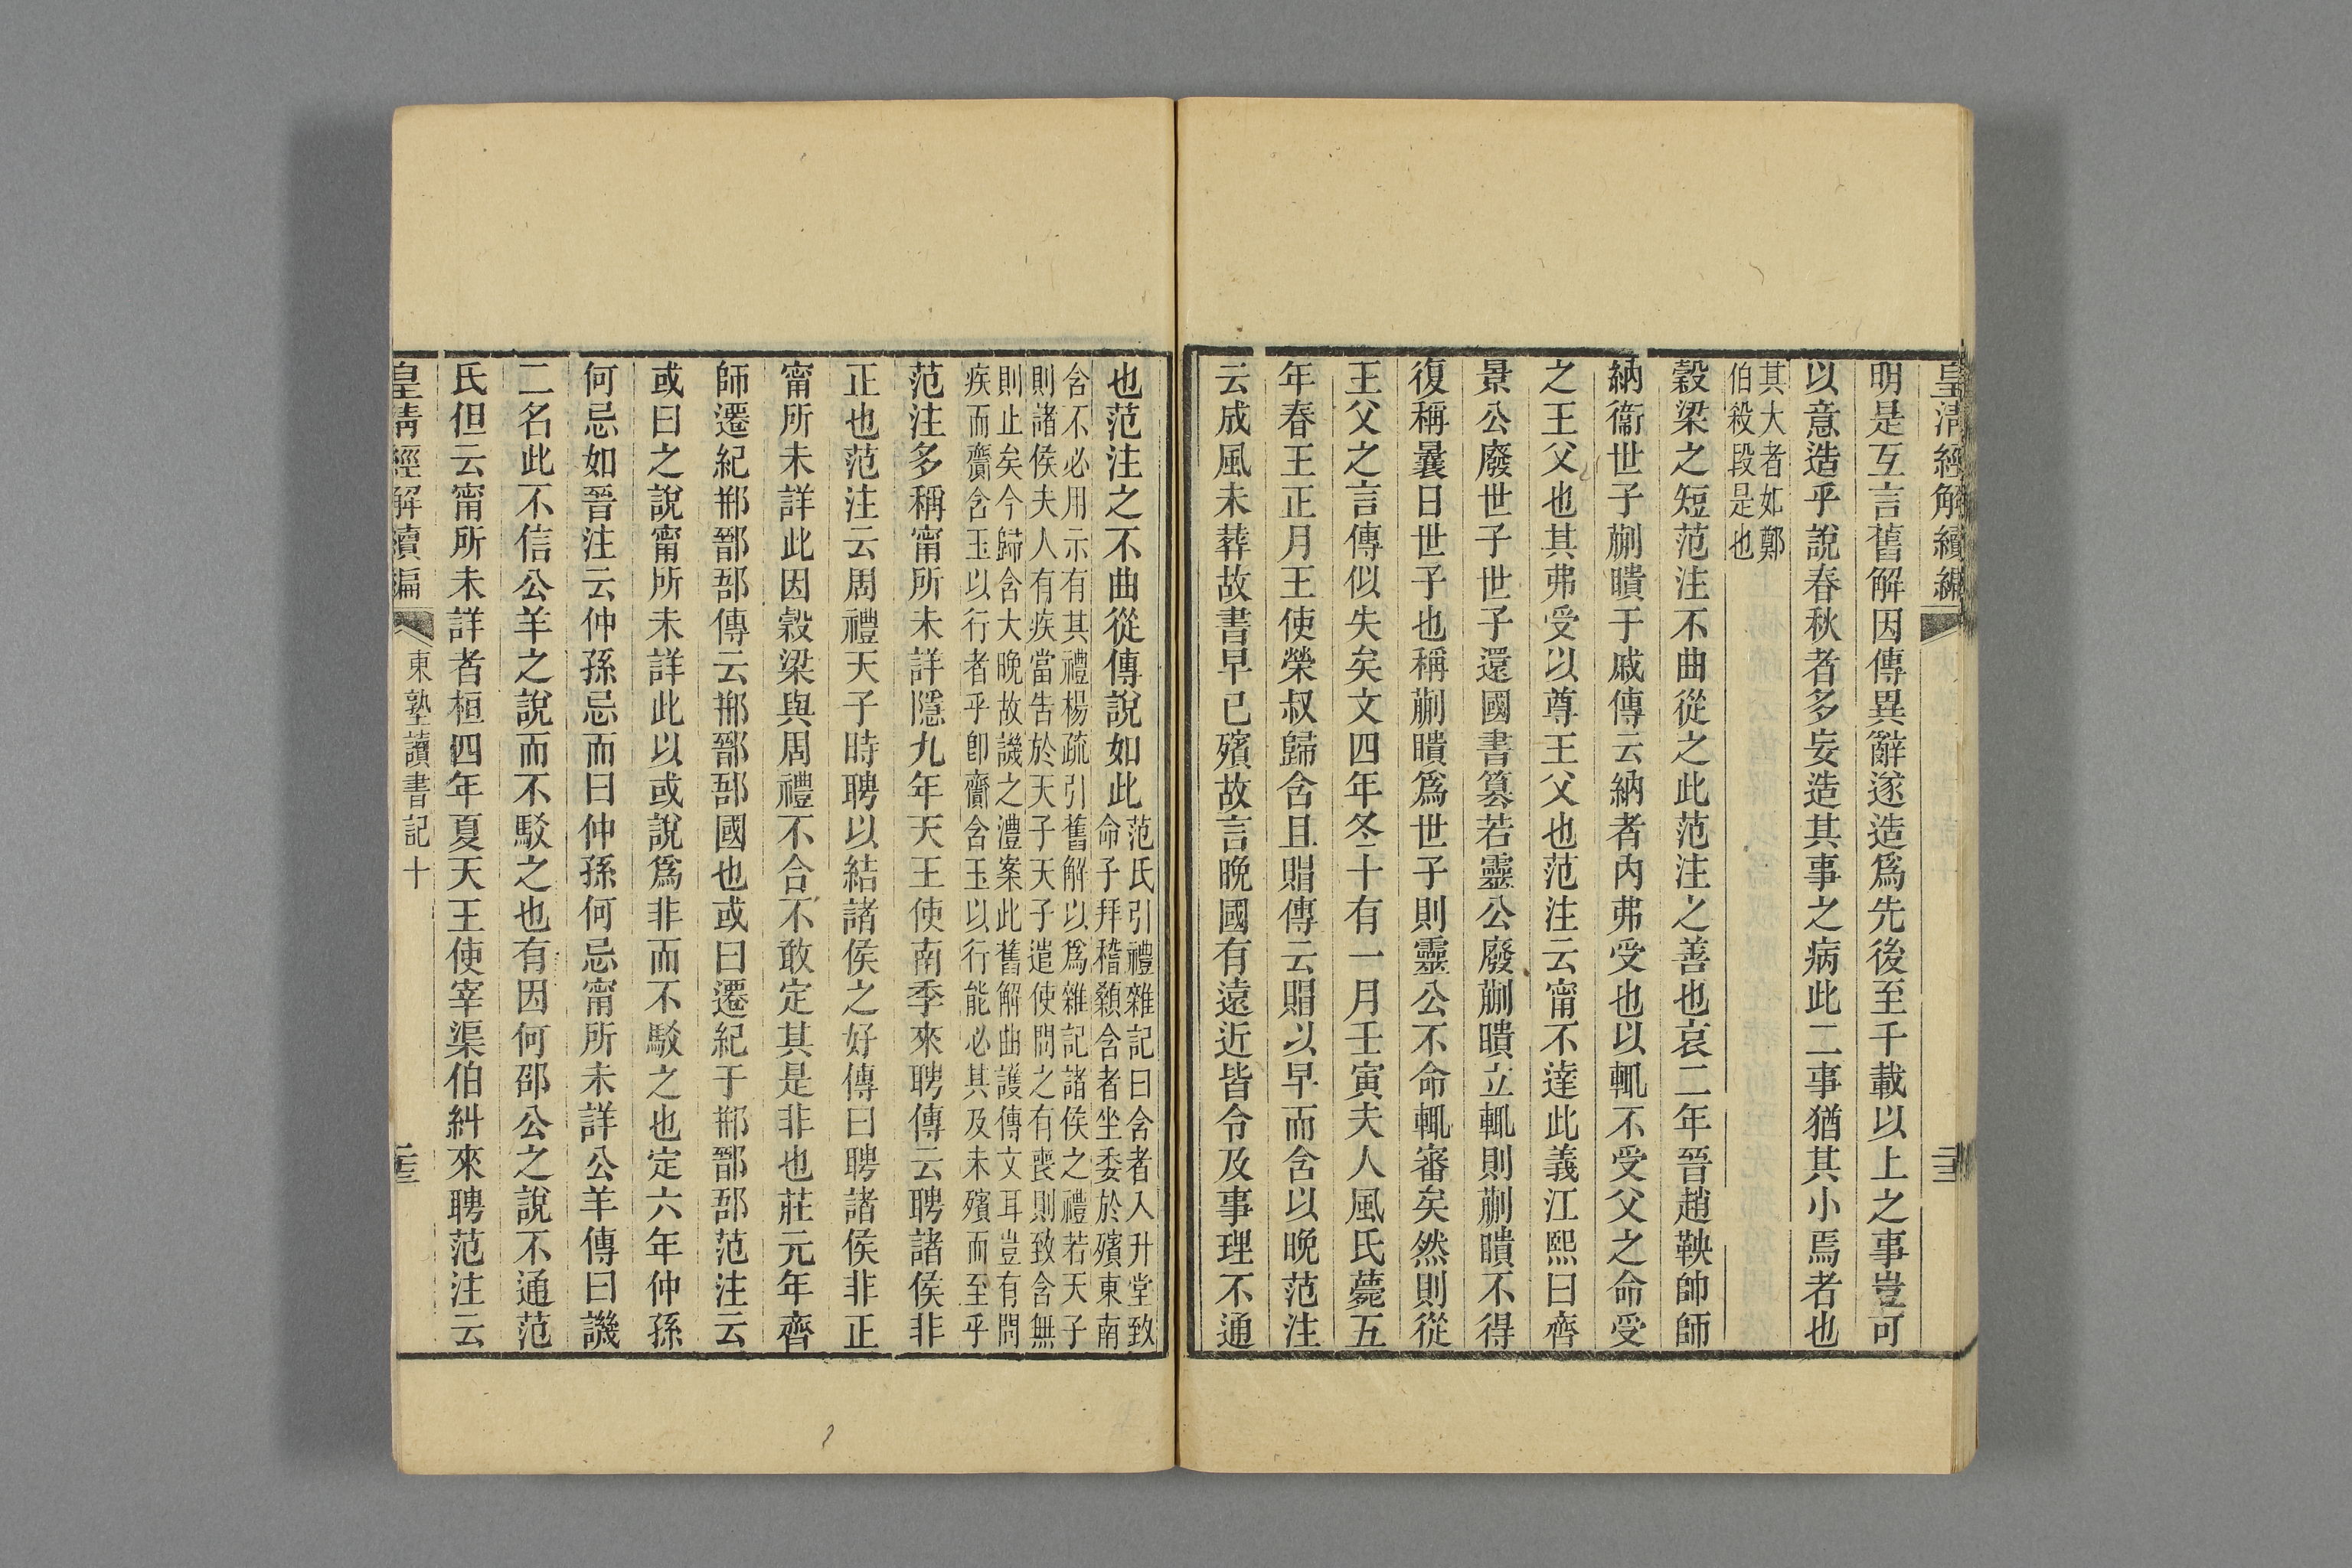 皇清經解續編
二十三
明是互言舊解因傳異辭遂造爲先後至千載以上之事豈可
以意造乎說春秋者多妄造其事之病此二事猶其小焉者也
其大者如鄭
伯殺段是也
穀梁之短范注不曲從之此范注之善也哀二年晉趙鞅帥師
納衞世子蒯聵于戚傳云納者內弗受也以輒不受父之命受
之王父也其弗受以尊王父也范注云甯不達此義江熙曰齊
景公廢世子世子還國書篡若靈公廢蒯聵立輒則蒯聵不得
復稱曩日世子也稱蒯聵爲世子則靈公不命輒審矣然則從
王父之言傳似失矣文四年冬十有一月壬寅夫人風氏薨五
年春王正月王使榮叔歸含且賵傳云賵以早而含以晚范注
云成風未葬故書早已殯故言晚國有遠近皆令及事理不通
也范注之不曲從傳說如此
范氏引禮雜記曰含者入升堂致
命子拜稽顙含者坐委於殯東南
含不必用示有其禮楊疏引舊解以爲雜記諸侯之禮若天子
則諸侯夫人有疾當告於天子天子遣使問之有喪則致含無
則止矣今歸含大晚故譏之澧案此舊解曲護傳文耳豈有問
疾而齎含玉以行者乎卽齎含玉以行能必其及未殯而至乎
范注多稱甯所未詳隱九年天王使南季來聘傳云聘諸侯非
正也范注云周禮天子時聘以結諸侯之好傳曰聘諸侯非正
甯所未詳此因穀梁與周禮不合不敢定其是非也莊元年齊
師遷紀郱鄑郚傳云郱鄑郚國也或曰遷紀于郱鄑郚范注云
或曰之說甯所未詳此以或說爲非而不駁之也定六年仲孫
何忌如晉注云仲孫忌而曰仲孫何忌甯所未詳公羊傳曰譏
二名此不信公羊之說而不駁之也有因何邵公之說不通范
氏但云甯所未詳者桓四年夏天王使宰渠伯糾來聘范注云
皇清經解續編
東塾讀書記十
二十三